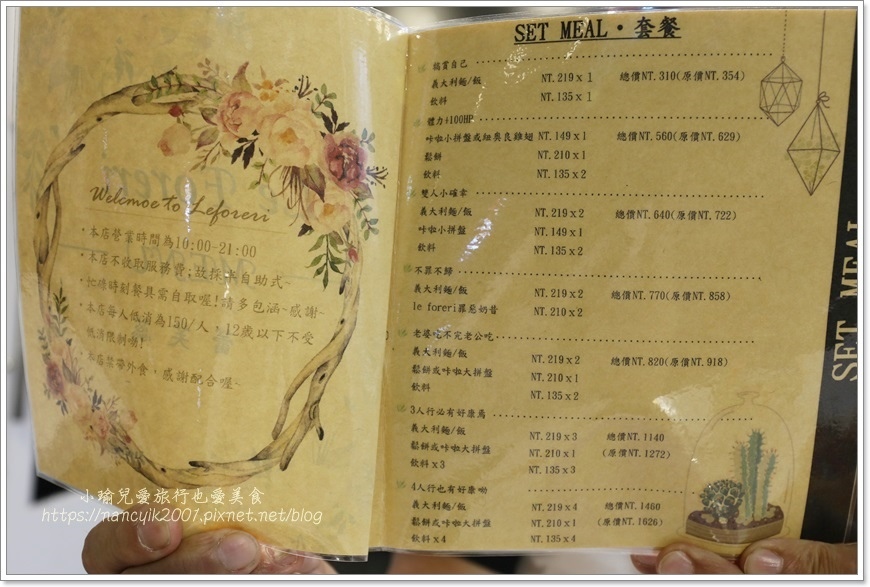 Welcmoe to Leforeri
·本店營業時間為10:00-21:00
·本店不收取服務費;故採半自助式~
·忙碌時刻餐具需自取喔!請多包涵~感謝~
·本店每人低消為150/人，12歲以下不受
低消限制喲!
·本店禁帶外食，感謝配合喔~
小瑜兒愛旅行也愛美食
https://nancyik2007.pixnet.net/blog
SET MEAL·套餐
犒賞自己
義大利麵/飯 NT.219x1 總價NT.310(原價NT.354)
飲料 NT.135x1
體力+100HP
咔啦小拼盤或紐奧良雞翅 NT.149x1 總價NT.560(原價NT.629)
鬆餅 NT.210x1
飲料 NT.135x2
雙人小確幸
義大利麵/飯 NT.219x2 總價NT.640(原價NT.722)
咔啦小拼盤 NT.149x1
飲料 NT.135x2
不罪不歸
義大利麵/飯 NT.219x2 總價NT.770(原價NT.858)
le foreri罪惡奶昔 NT.210x2
老婆吃不完老公吃
義大利麵/飯 NT.219x2 總價NT.820(原價NT.918)
鬆餅或咔啦大拼盤 NT.210x1
飲料 NT.135x2
3人行必有好康馬
義大利麵/飯 NT.219x3 總價NT.1140
鬆餅或咔啦大拼盤 NT.210x1 (原價NT.1272)
飲料x3 NT.135x3
4人行也有好康呦
義大利麵/飯 NT.219x4 總價NT.1460
鬆餅或咔啦大拼盤 NT.210x1 (原價NT.1626)
飲料x4 NT.135x4
SET MEAL